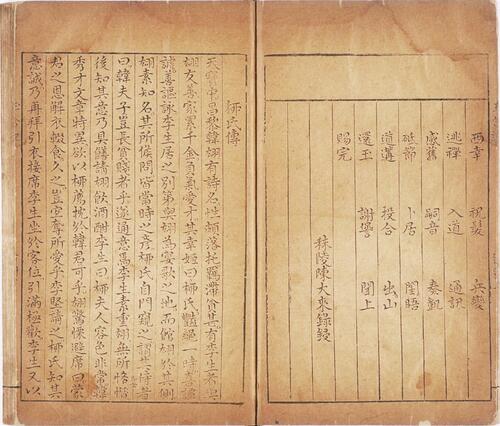 西幸 祝髮 兵變
逃禪 入道 通訊
感舊 嗣音 奏凱
砥節 卜居 閨晤
道遘 投合 出山
還玉 聞上
賜完
秣陵陳大來錄鋟
柳氏傳
天寶中昌黎韓翃有詩名性頗落托羈滯貧甚有李生者與
翃友善家累千金負氣愛才其幸姬曰柳氏艷絕一時喜談
謔善謳詠李生居之別第與翃為宴歌之地而館翃於其側
翃素知名其所候問皆當時之彥柳氏自門窺之謂其侍者
曰韓夫子豈長貧賤者乎遂通意焉李生素重翃無所悋惜
後知其意乃具饍請翃飲酒酣李生曰柳夫人容色非常韓
秀才文章特異欲以柳薦枕於韓君可乎翃驚慄避席曰蒙
君之恩解衣輟食久之豈宜奪所愛乎李堅請之柳氏知其
意誠乃再拜引衣接席李生坐於客位引滿極歡李生又以